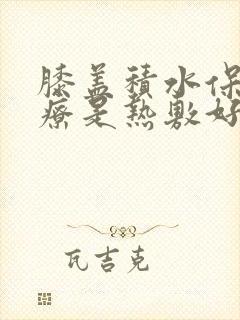 膝盖積水保
療是熱敷好
瓦吉克